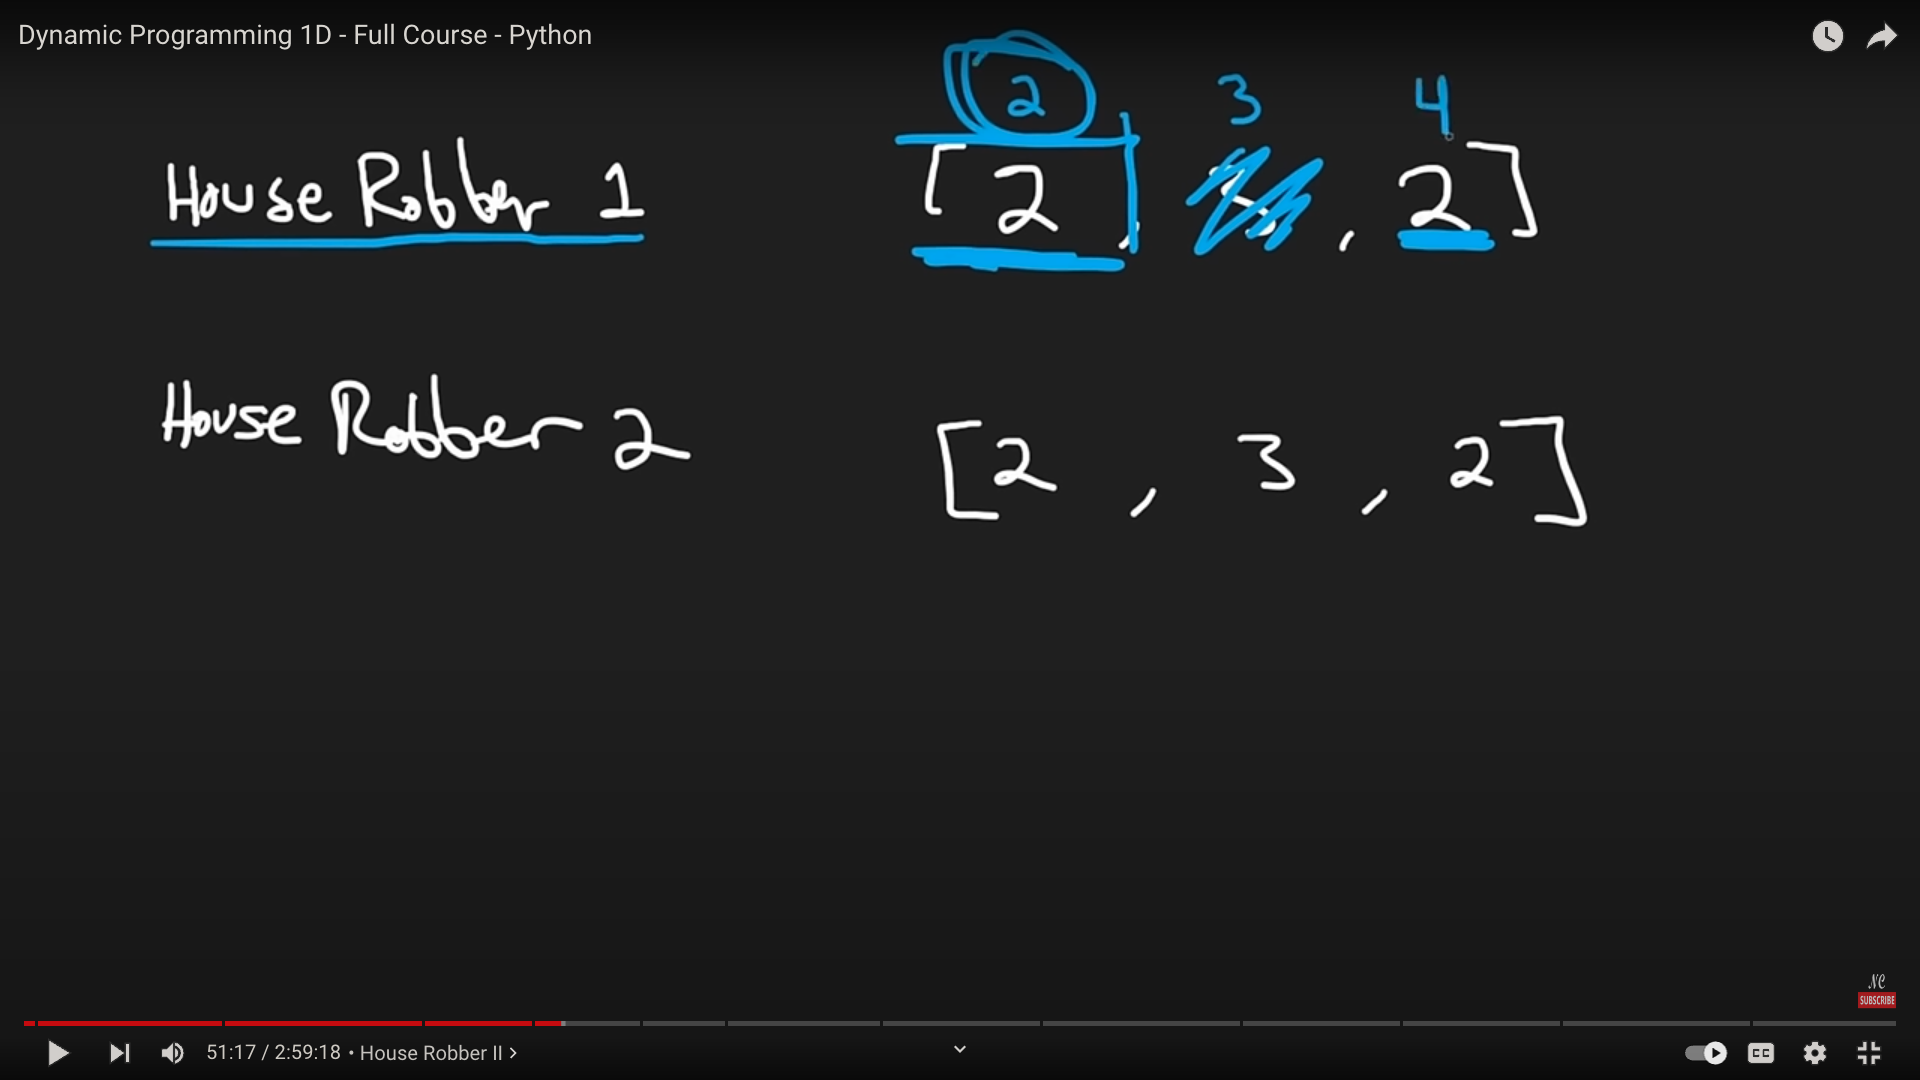 Dynamic Programming 1D - Full Course - Python
2 3 4
House Robber 1
[2, , 2]
House Robber 2
[2, 3, 2]
NC
SUBSCRIBE
51:17 / 2:59:18 • House Robber II >
CC